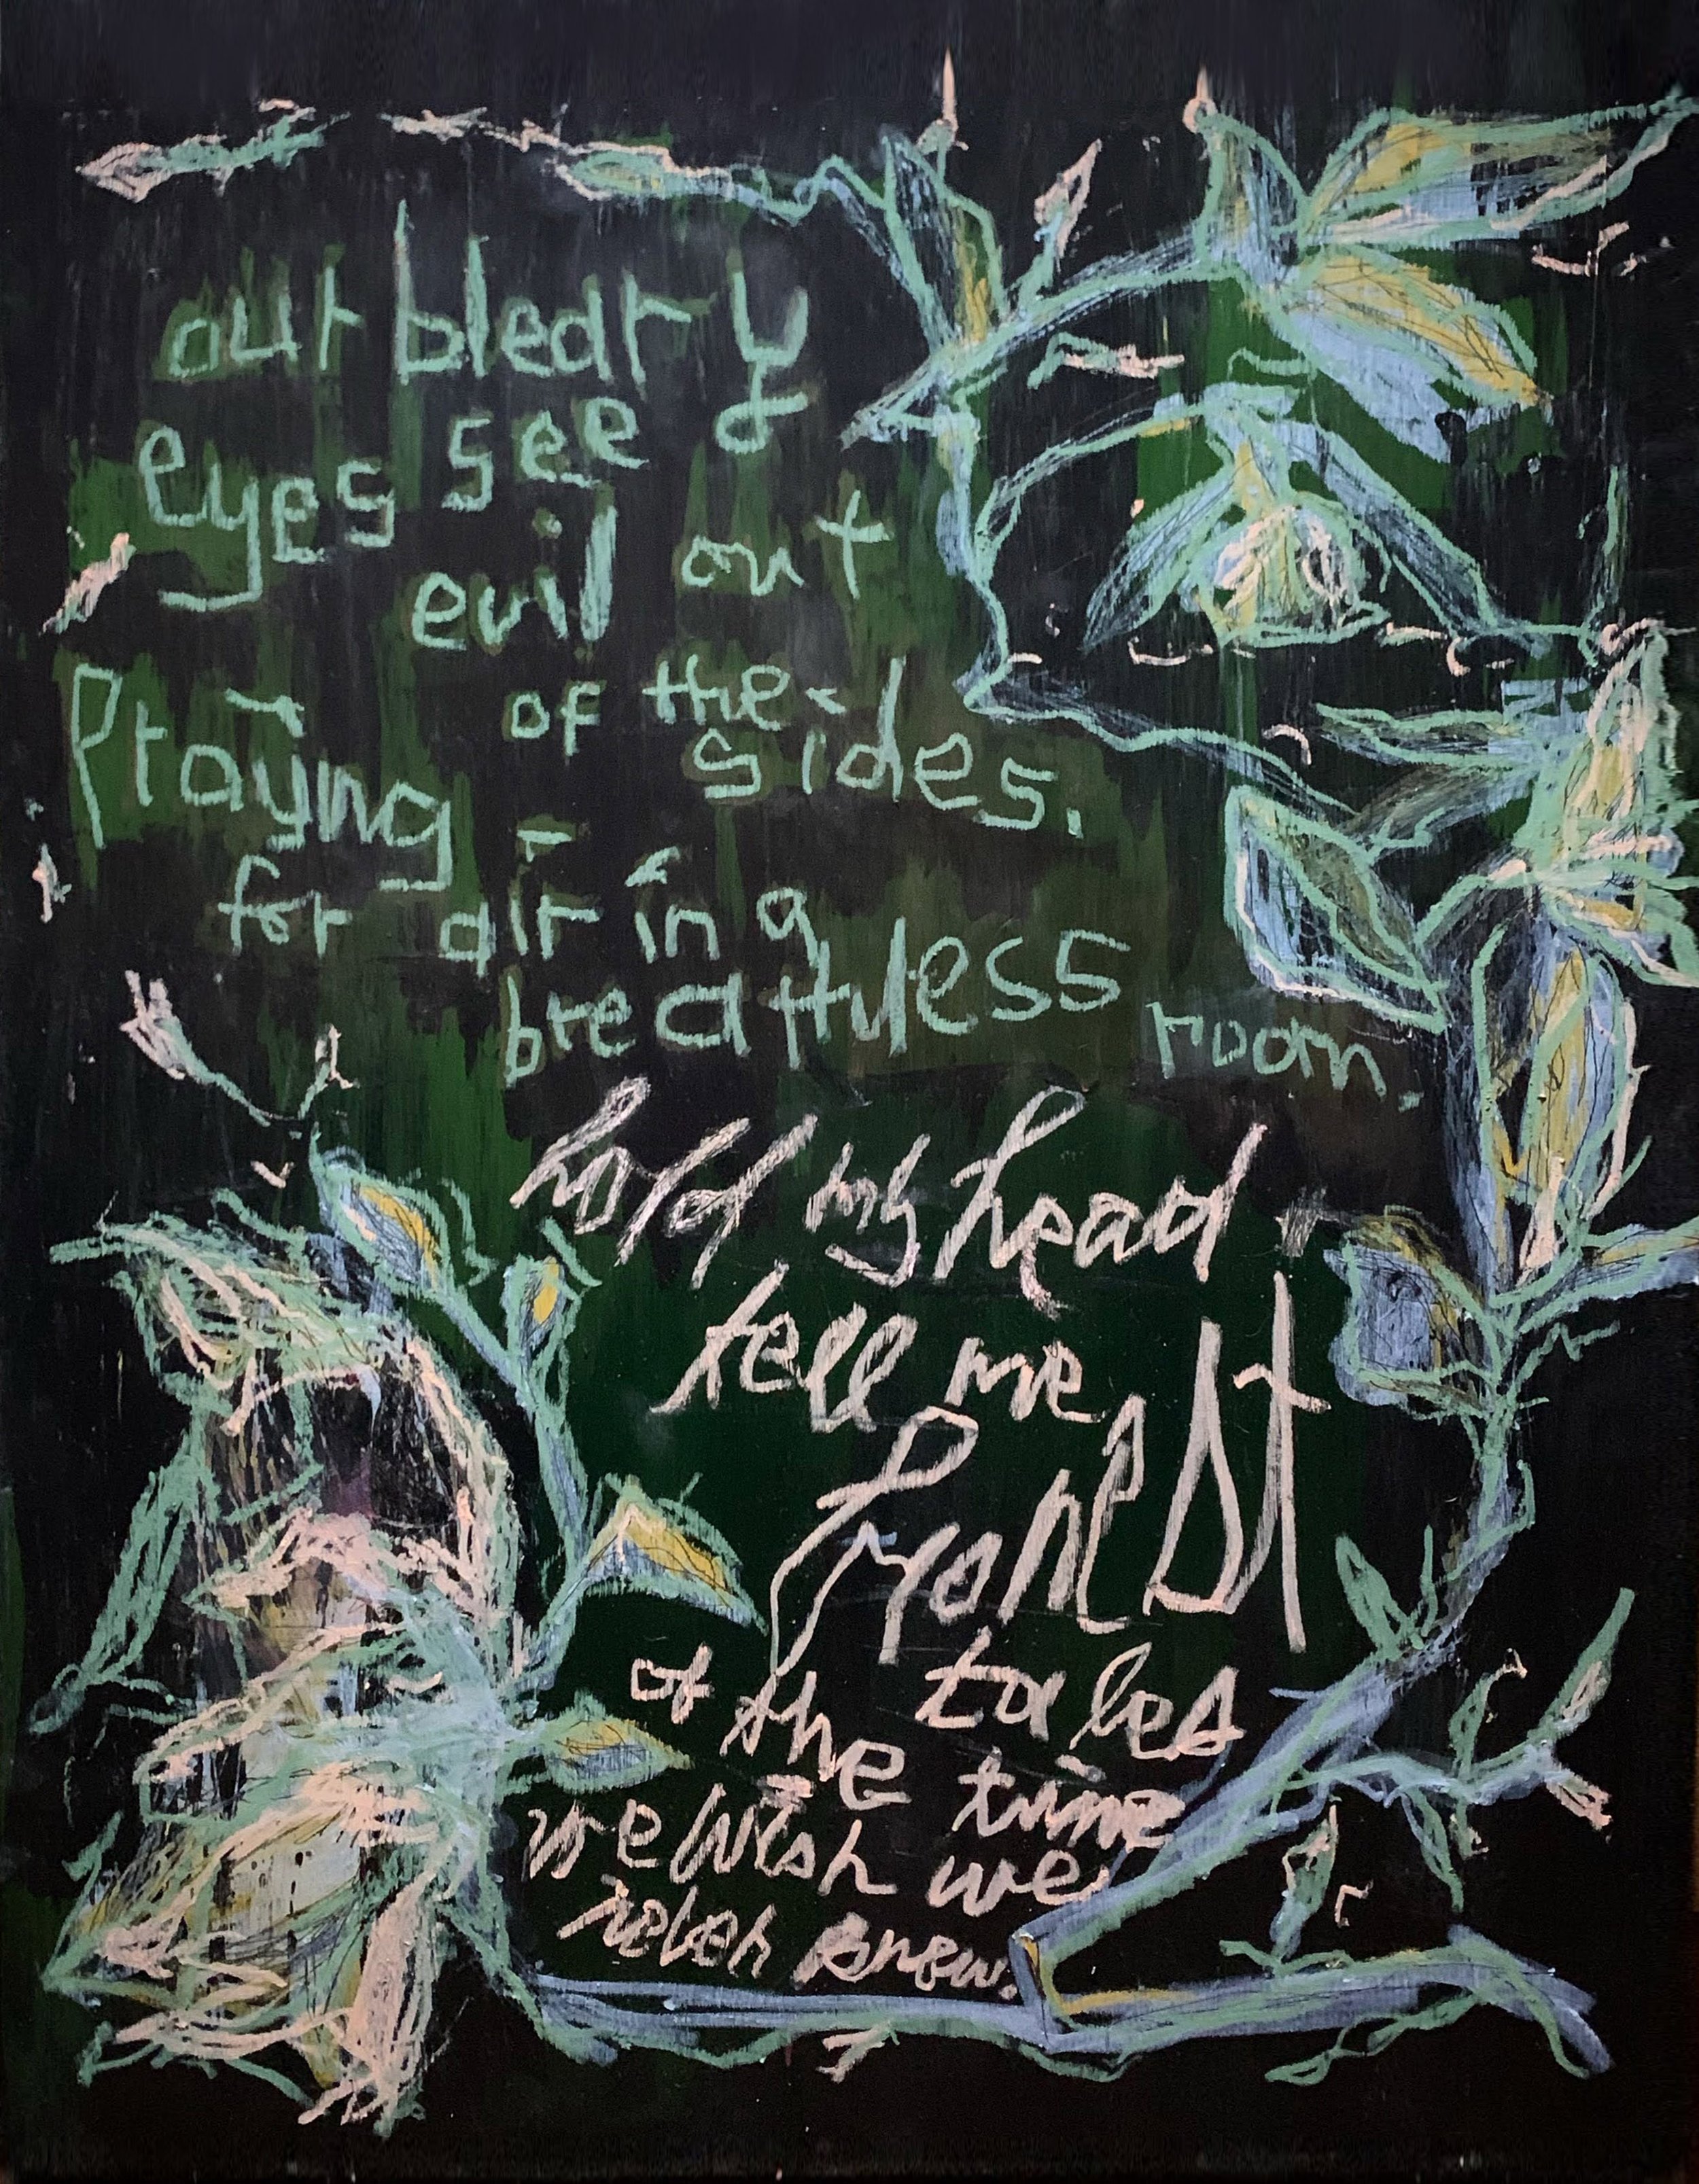 our bleary
eyes see &
evil out
of the
sides.
Praying
for air in a
breathless
room.
hold my head
tell me
honest
tales
of the time
we wish we
never knew.